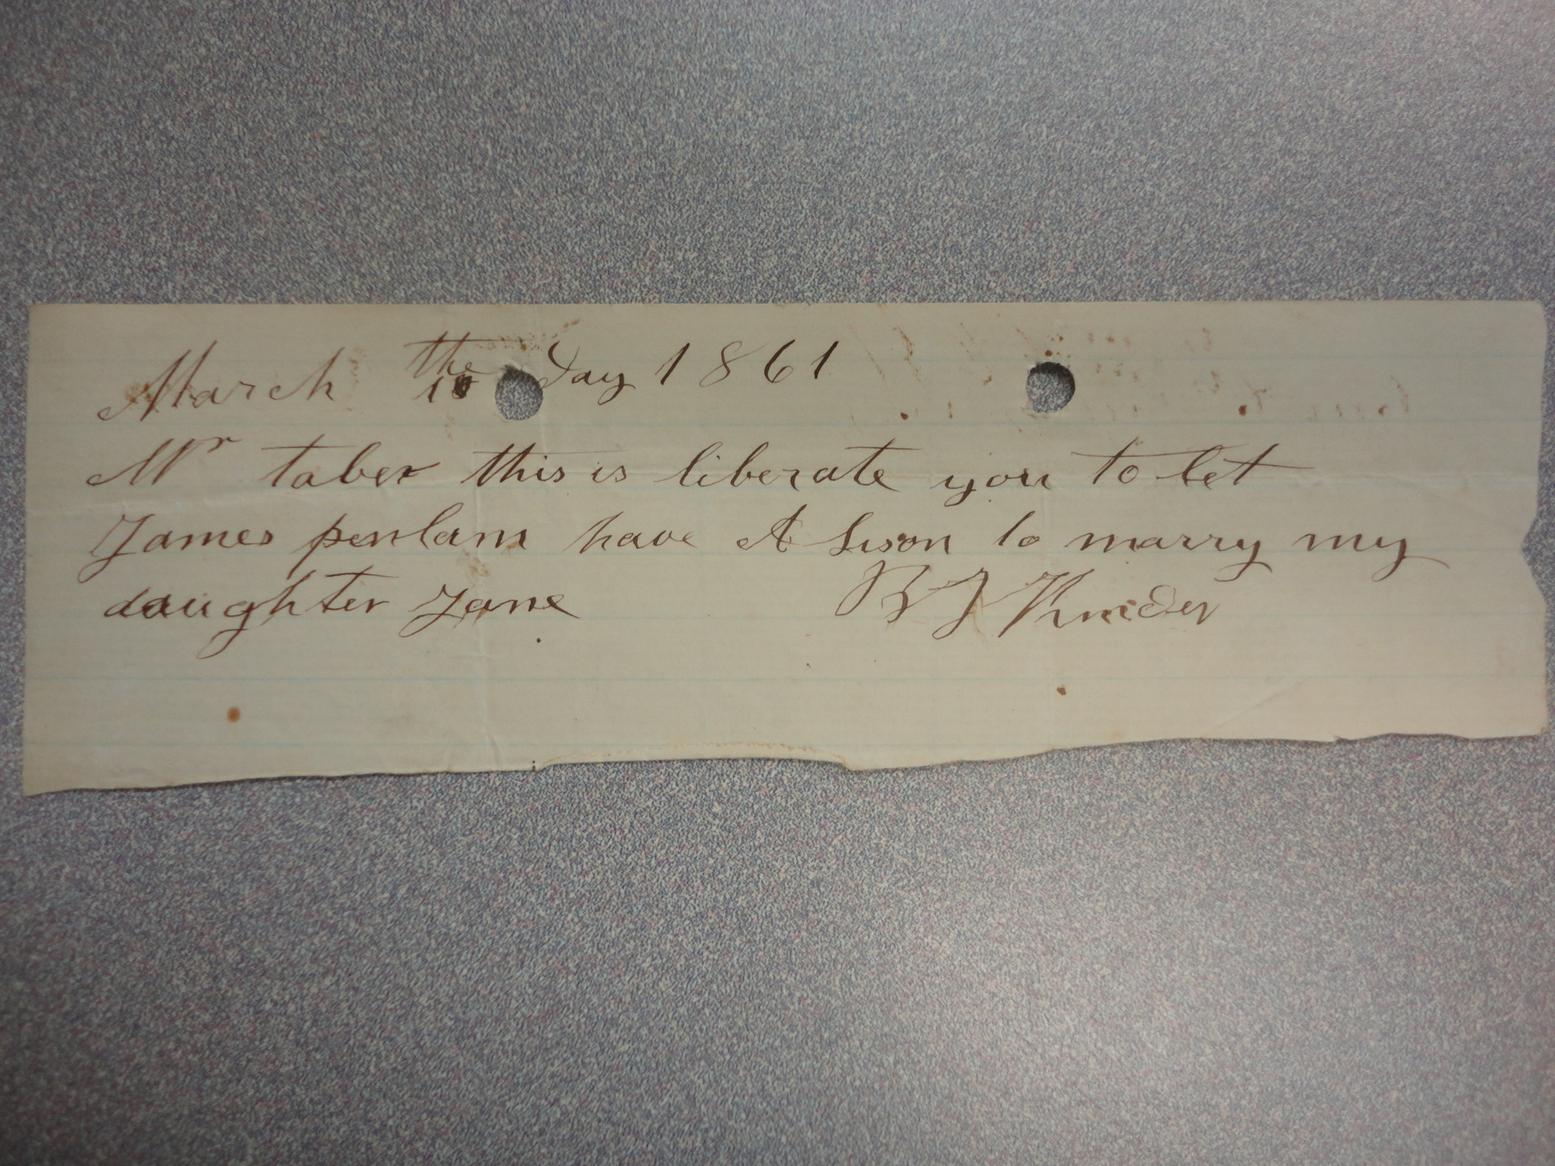 March the 10 day 1861
Mr taber this is liberate you to let
James penlam have A Lison to marry my
daughter Jane B J Knider